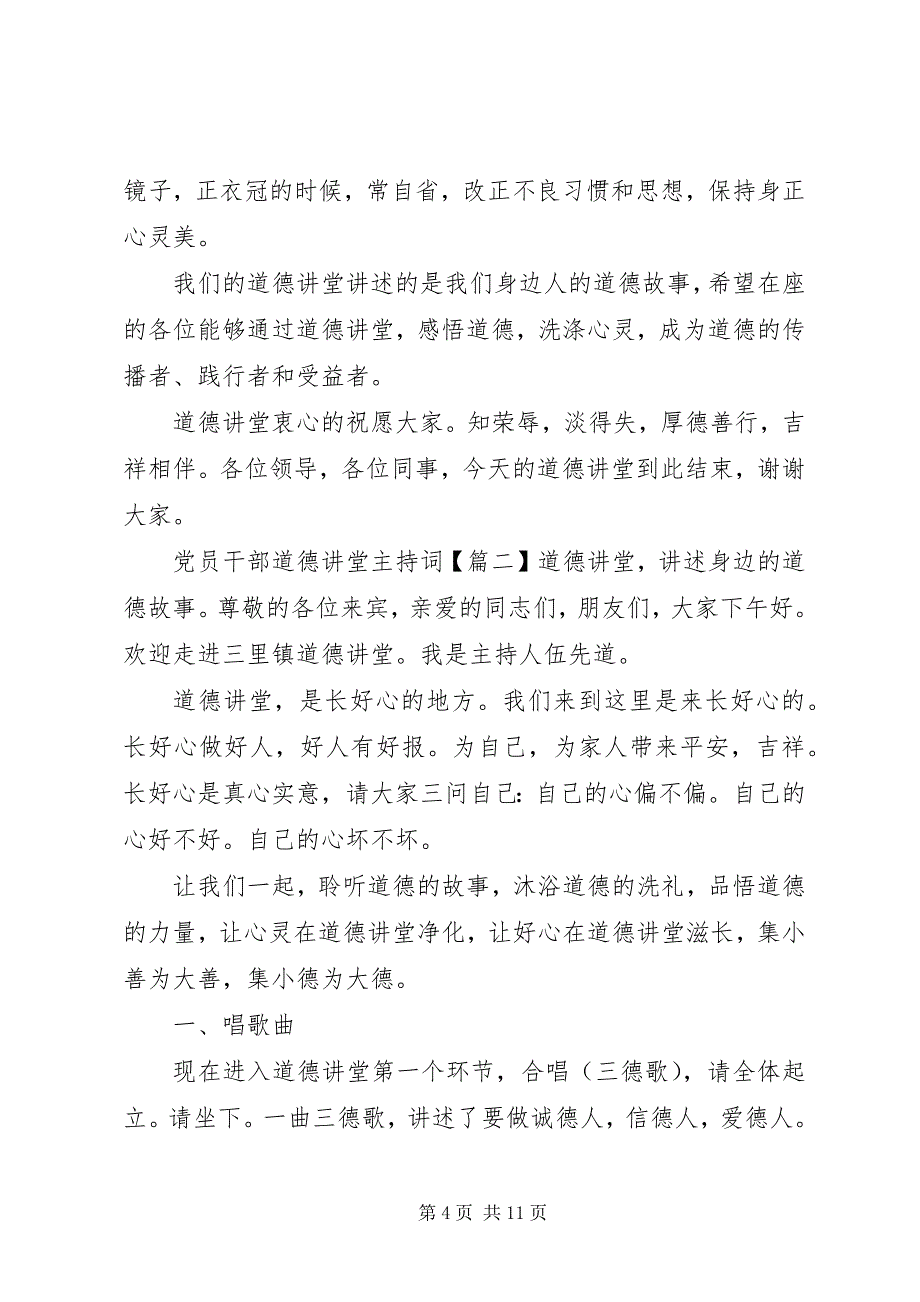 镜子，正衣冠的时候，常自省，改正不良习惯和思想，保持身正
心灵美。
我们的道德讲堂讲述的是我们身边人的道德故事，希望在座
的各位能够通过道德讲堂，感悟道德，洗涤心灵，成为道德的传
播者、践行者和受益者。
道德讲堂衷心的祝愿大家。知荣辱，淡得失，厚德善行，吉
祥相伴。各位领导，各位同事，今天的道德讲堂到此结束，谢谢
大家。
党员干部道德讲堂主持词【篇二】道德讲堂，讲述身边的道
德故事。尊敬的各位来宾，亲爱的同志们，朋友们，大家下午好。
欢迎走进三里镇道德讲堂。我是主持人伍先道。
道德讲堂，是长好心的地方。我们来到这里是来长好心的。
长好心做好人，好人有好报。为自己，为家人带来平安，吉祥。
长好心是真心实意，请大家三问自己：自己的心偏不偏。自己的
心好不好。自己的心坏不坏。
让我们一起，聆听道德的故事，沐浴道德的洗礼，品悟道德
的力量，让心灵在道德讲堂净化，让好心在道德讲堂滋长，集小
善为大善，集小德为大德。
一、唱歌曲
现在进入道德讲堂第一个环节，合唱（三德歌），请全体起
立。请坐下。一曲三德歌，讲述了要做诚德人，信德人，爱德人。
第 4 页 共 11 页